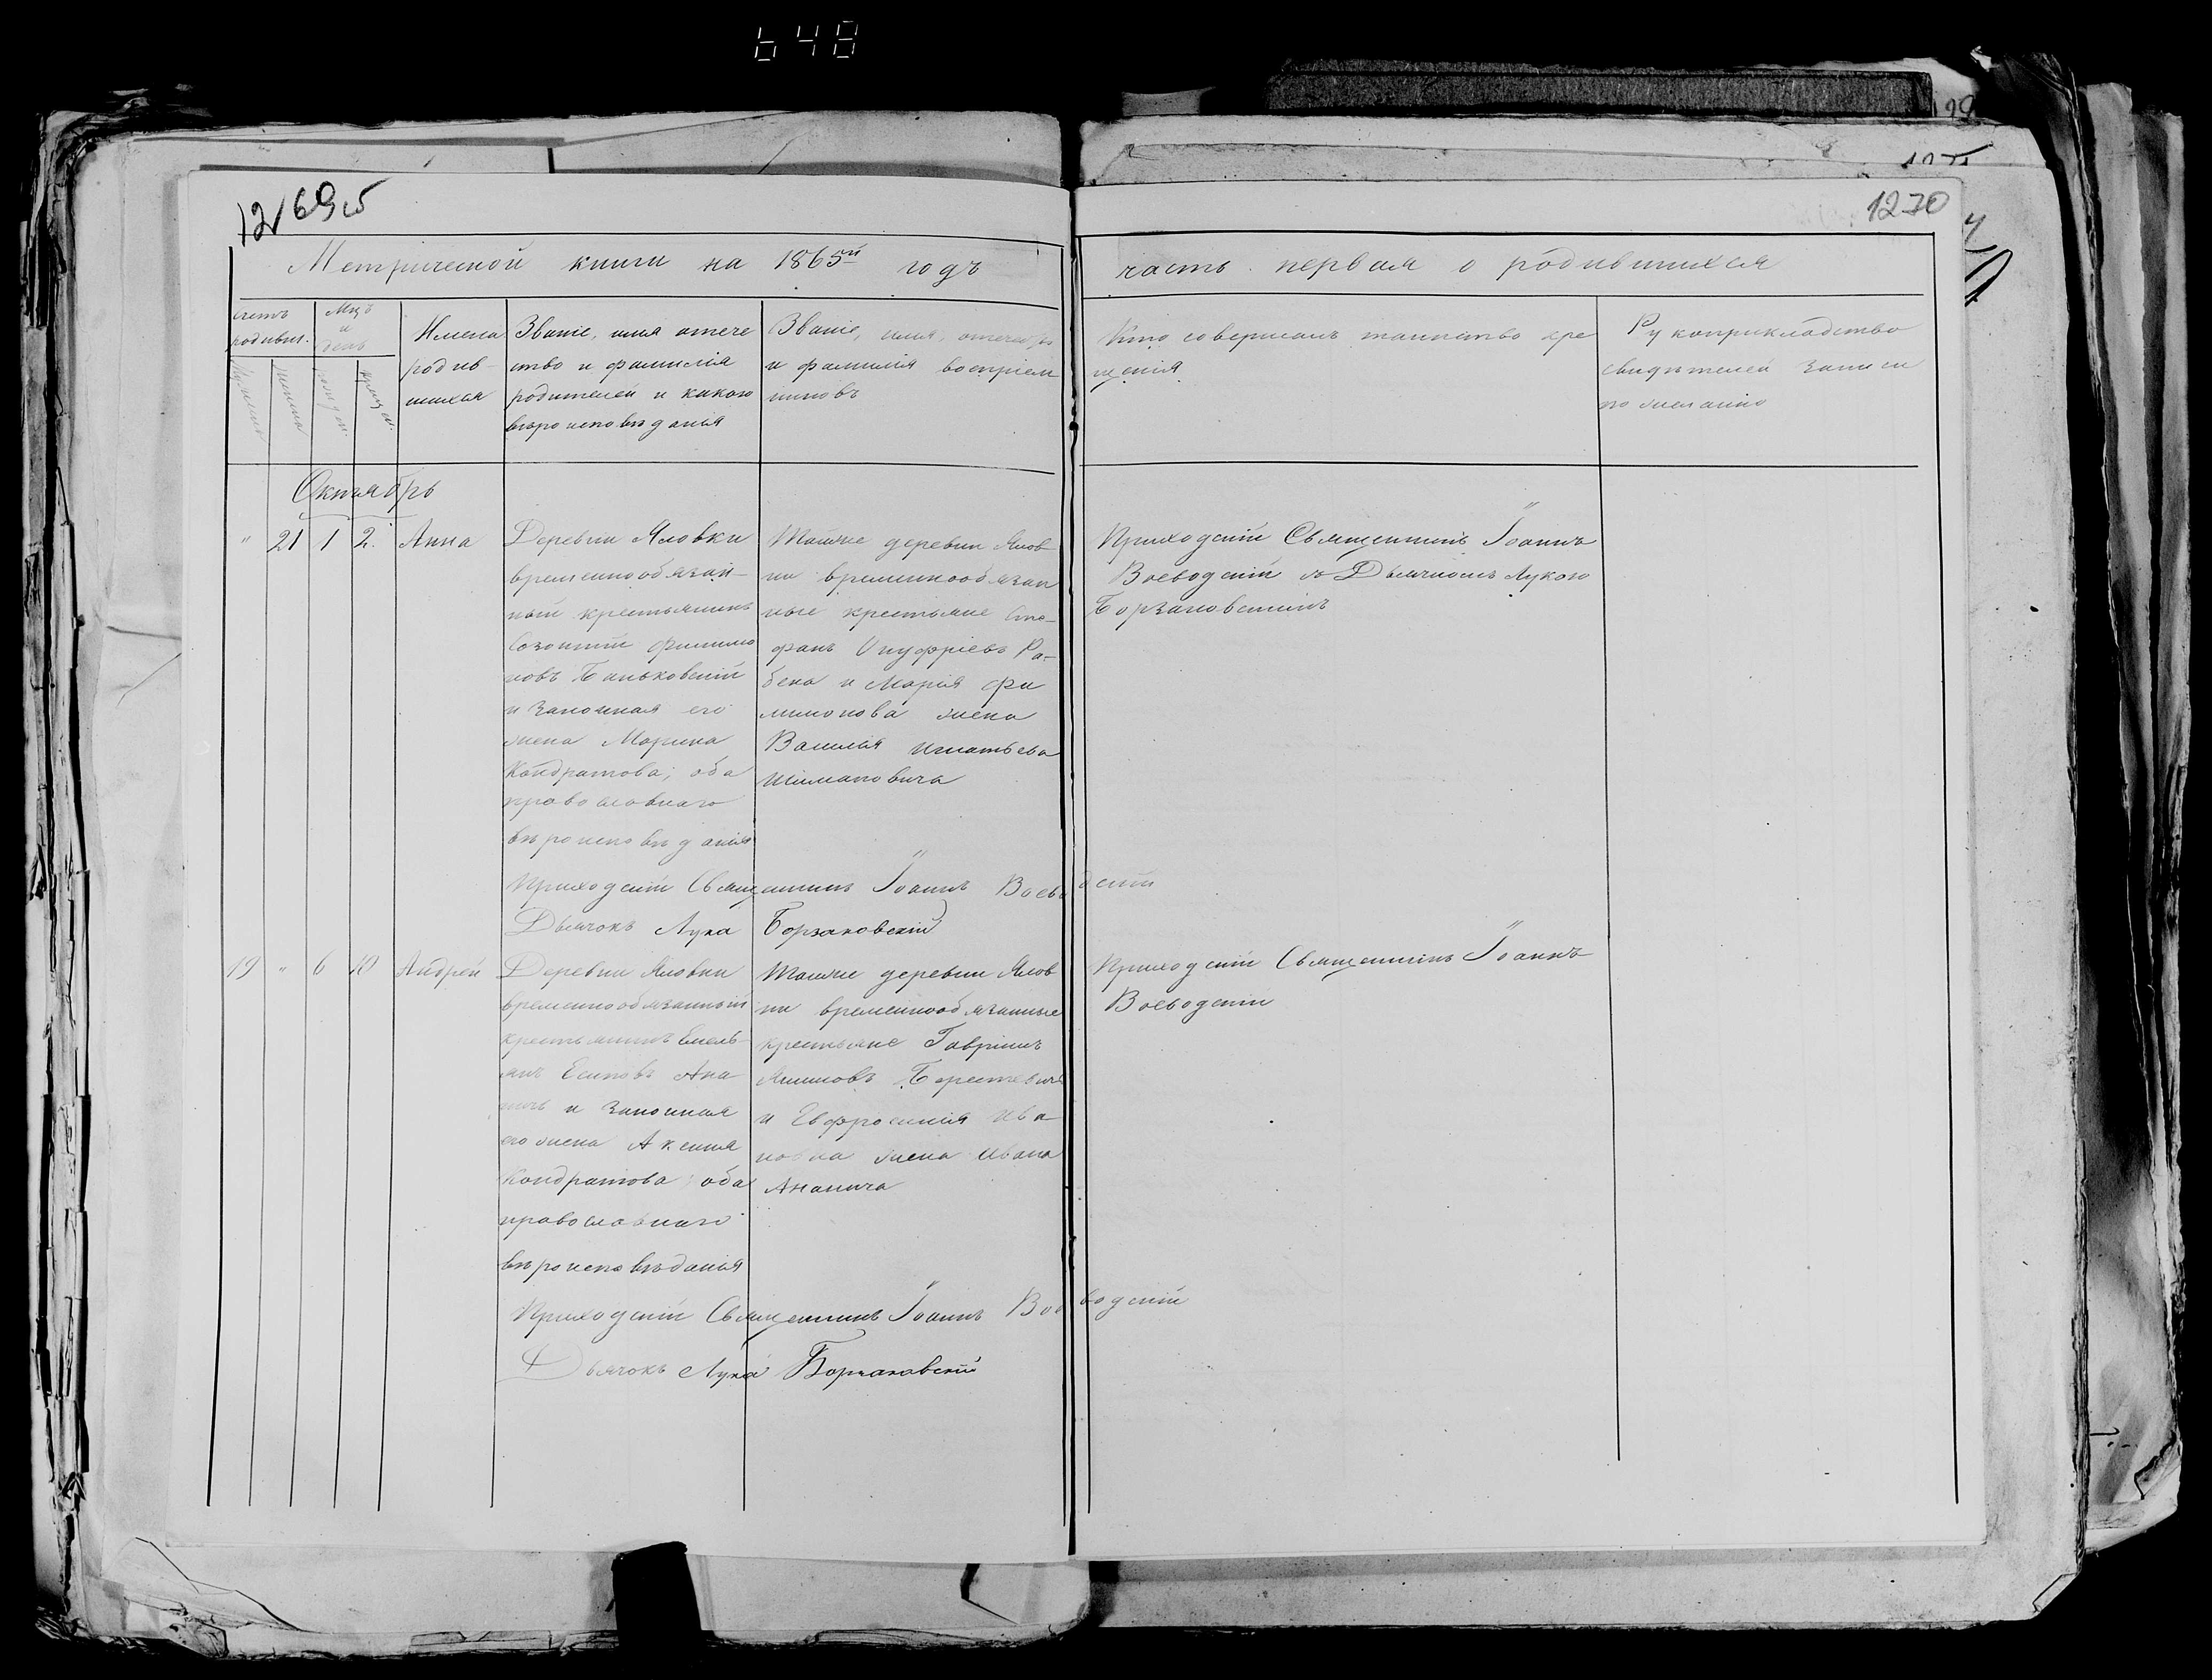 648
1269об
1270
Метрической книги на 1865й годъ
часть первая о родившихся
Счетъ родивш.
Мцъ и день
Имена
родив-
шихся
Званіе, имя отече
ство и фамилія
родителей и какого
вѣроисповѣданія
Званіе, имя, отечество
и фамилія воспріем
никовъ
Кто совершалъ таинство кре
щенія
Рукоприкладство
свидѣтелей записи
по желанію
Октябрь
" 21 1 2. Анна
Деревни Яловки
временнообязан-
ный крестьянинъ
Созонтій Филимо
новъ Баньковскій
и законная его
жена Марина
Кондратова; оба
православнаго
вѣроисповѣданія
Тойже деревни Ялов
ки временнообязан
ные крестьяне Сте-
фанъ Онуфріевъ Ра-
бека и Марія Фи
лимонова жена
Василія Игнатьева
Шимановича
Приходскій Священникъ Іоаннъ
Воеводскій съ Дьячкомъ Лукою
Борзаковскимъ
Приходскій Священникъ Іоаннъ Воеводскій
Дьячокъ Лука Борзаковскій
19 " 6 10 Андрей
Деревни Яловки
временнообязанный
крестьянинъ Емель-
янъ Есиповъ Ана-
ничъ и законная
его жена Аксинія
Кондратова; оба
православнаго
вѣроисповѣданія
Тойже деревни Ялов
ки временнообязанные
крестьяне Гавріилъ
Якимовъ
и Евфросинія Ива
новна жена Ивана
Ананича
Приходскій Священникъ Іоаннъ
Воеводскій
Приходскій Священникъ Іоаннъ Воеводскій
Дьячокъ Лука Борзаковскій